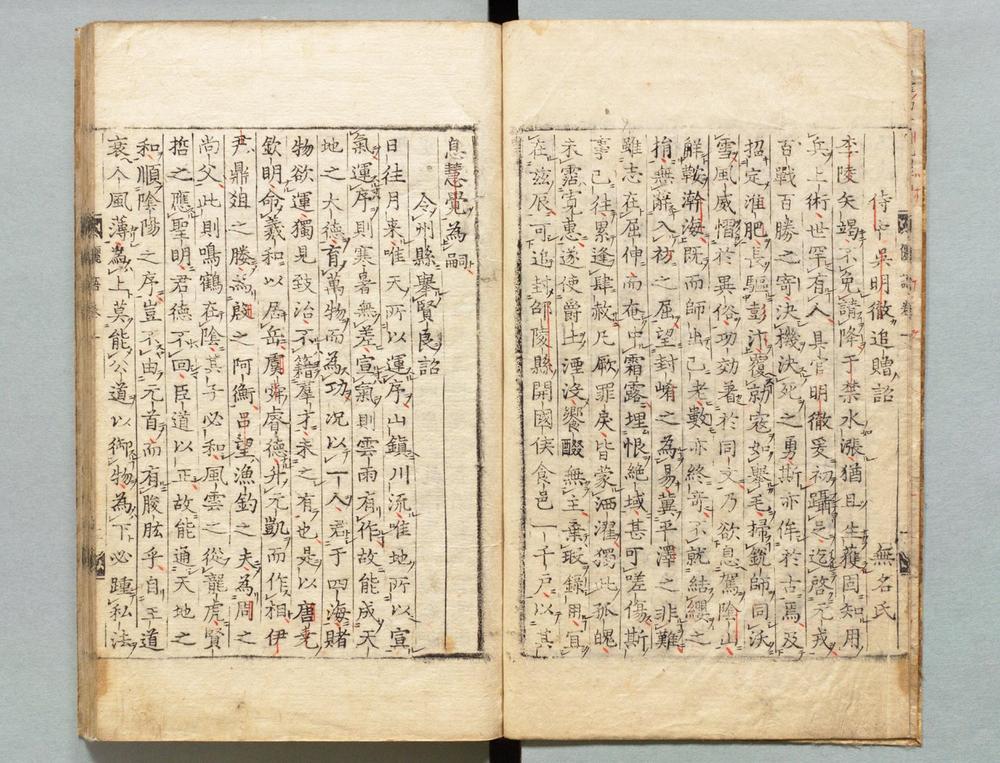 侍中吳明徹追贈詔　無名氏
李陵矢竭不免請降于禁水漲猶且生獲固知用
兵上術世罕有人具官明徹爰初躡足迄啓元戎
百戰百勝之竒決機決死之勇斯亦侔於古焉及
招定淮肥長驅彭汴覆勍寇如舉毛掃銳師同沃
雪風威慴於異俗功効著於同文乃欲息駕陰山
解鞍瀚海既而師出已老數亦終竒不就結纓之
捐無辭入之屈望封崤之為易冀平澤之非難
雖志在屈伸而奄中霜露埋恨絶域甚可嗟傷斯
事已往累逢肆赦凡厥罪戾皆蒙洒濯獨此孤魄
未霑寛惠遂使爵土湮沒饗醊無主棄瑕錄用宜
在茲辰可追封邵陵縣開國侯食邑一千戶以其
息慧覺為嗣
令州縣舉賢良詔
日往月来唯天所以運序山鎮川流唯地所以宣
氣運序則寒暑無差宣氣則雲雨有作故能成天
地之大德育萬物而為功况以一人君于四海賭
物欲運獨見致治不籍羣才未之有也是以唐堯
欽明命羲和以居岳虞舜睿德升元凱而作相伊
尹鼎俎之媵為殷之阿衡吕望漁釣之夫為周之
尚父此則鳴鶴在陰其子必和風雲之從龍虎賢
哲之應聖明君德不回臣道以正故能通天地之
和順陰陽之序豈不由元首而有股肱乎自王道
衰人風薄為上莫能公道以御物為下必踵私法